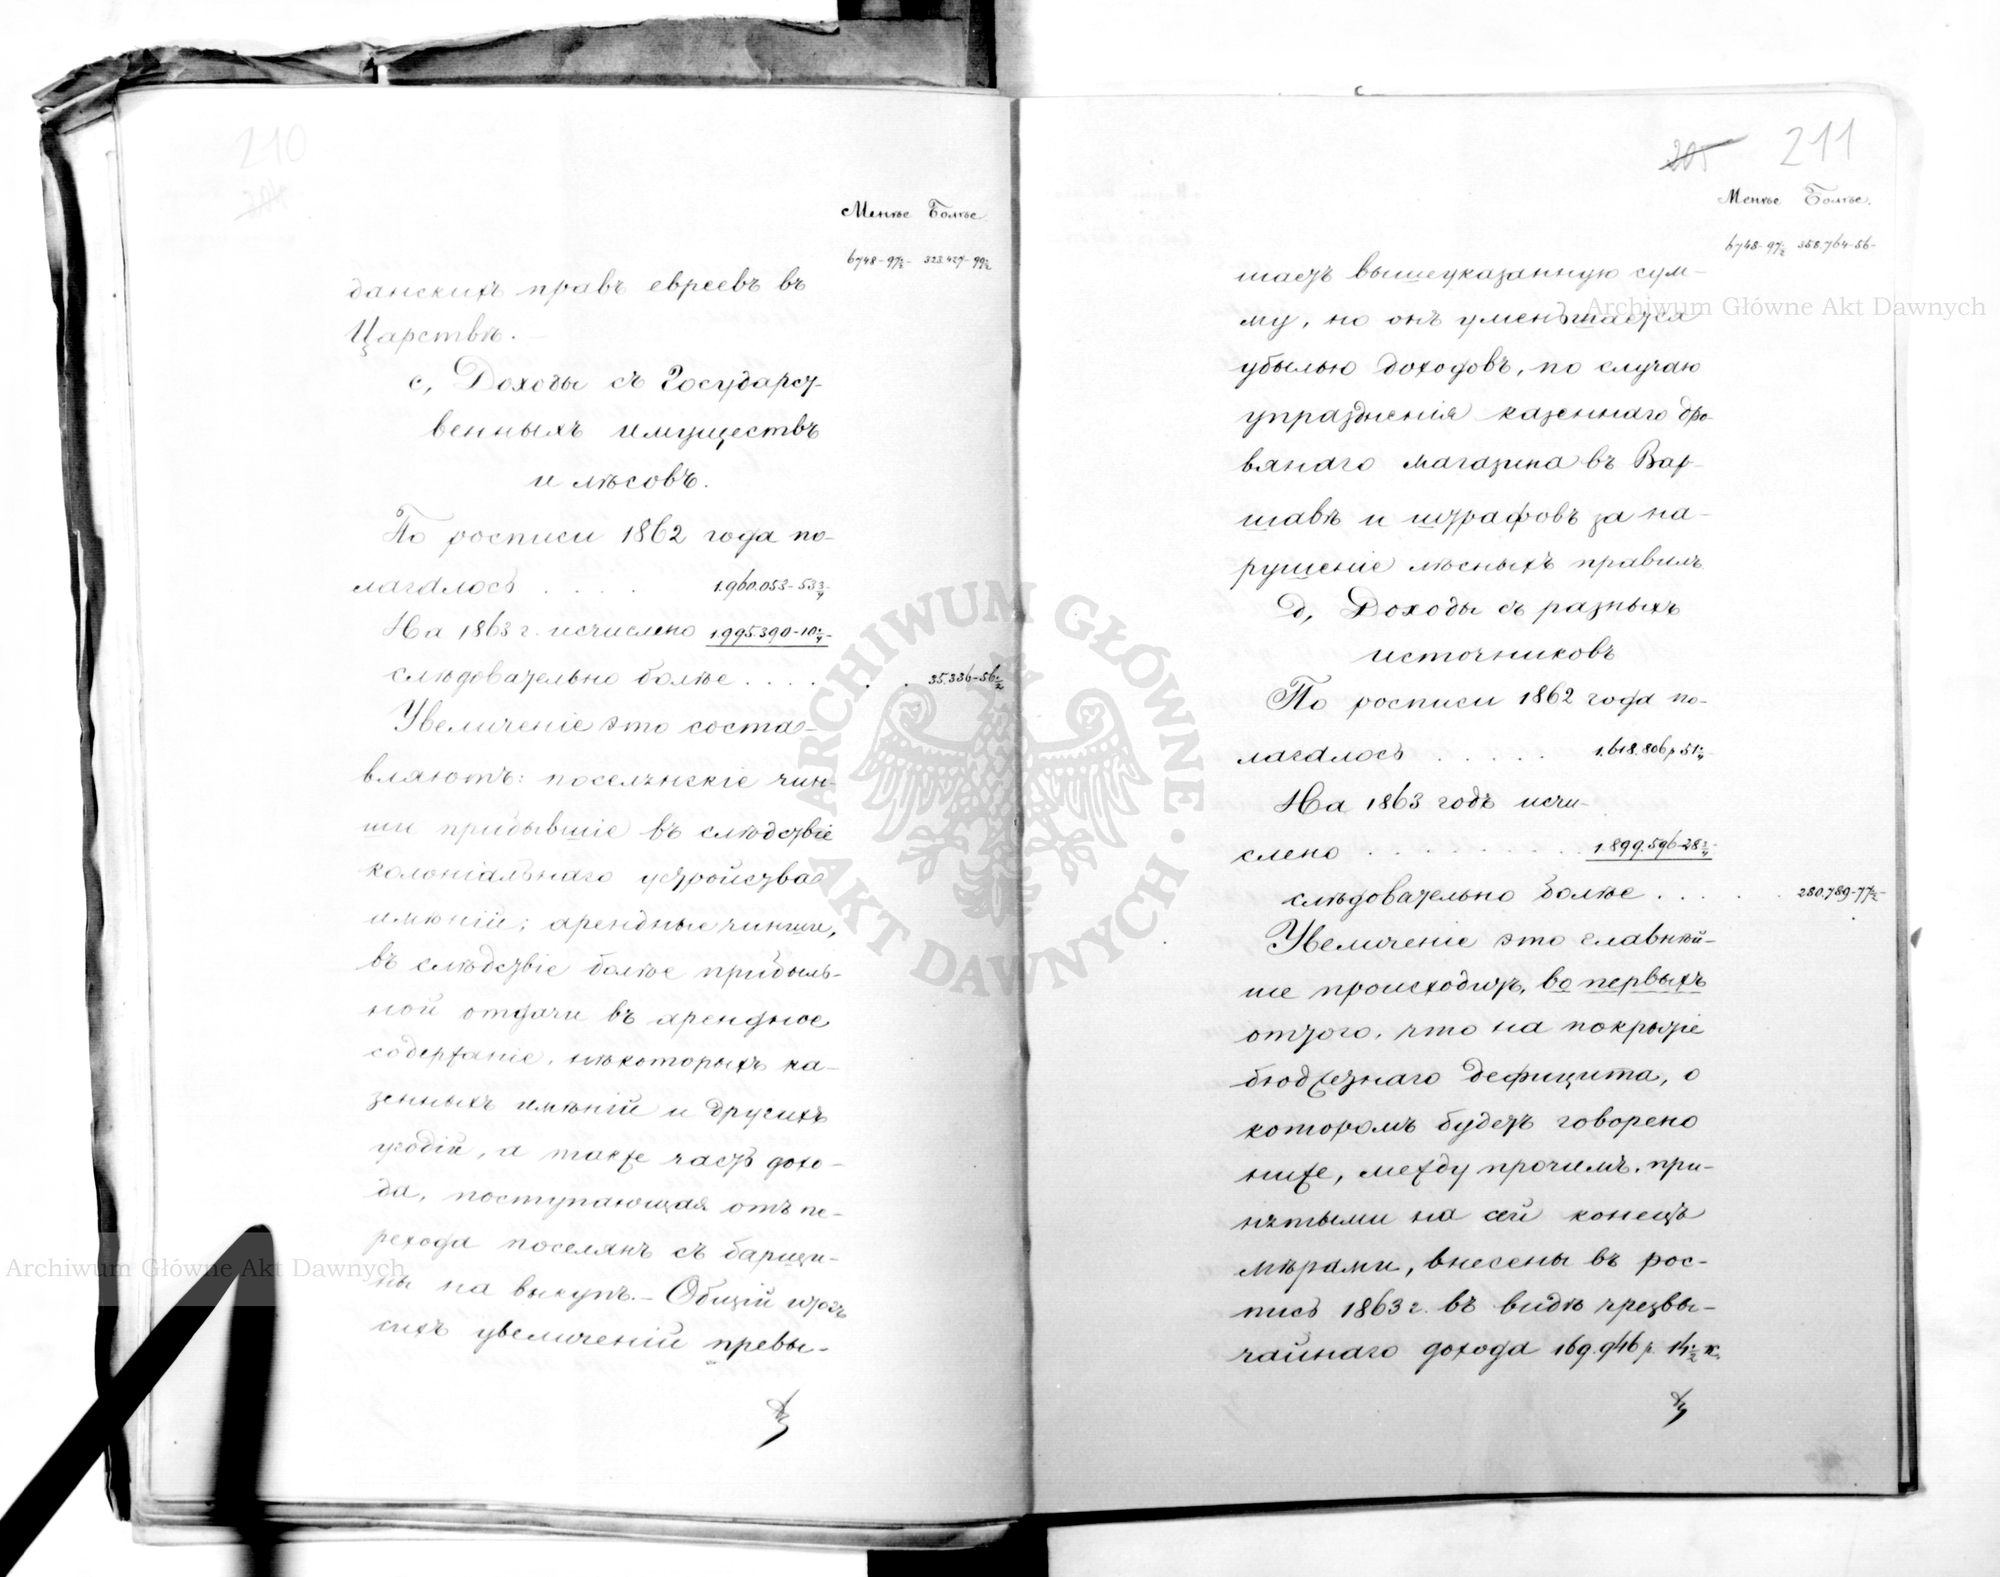 210
Менѣе Болѣе
6748-97½- 323.427-99½
данскихъ правъ евреевъ въ
Царствѣ.
с, Доходы съ Государст-
венныхъ имуществъ
и лѣсовъ.
По росписи 1862 года по-
лагалось . . . . 1.960.053-53¾-
На 1863 г. исчислено 1995.390-10¼-
слѣдовательно болѣе . . . . . . 35.336-56½
Увеличеніе это соста-
вляютъ: поселянскіе чин-
ши прибывшіе въ слѣдствіе
колоніальнаго устройства
имѣній; арендные чинши,
въ слѣдствіе болѣе прибыль-
ной отдачи въ арендное
содержаніе, нѣкоторыхъ ка-
зенныхъ имѣній и другихъ
угодій, а также часть дохо-
да, поступающая отъ пе-
рехода поселянъ съ барщи-
ны на выкупъ. - Общій итогъ
сихъ увеличеній превы-
205 211
Менѣе Болѣе.
6748-97½ 358.764-56-
шаетъ вышеуказанную сум-
му, но онъ уменьшается
убылью доходовъ, по случаю
упраздненія казеннаго дро-
вянаго магазина въ Вар-
шавѣ и штрафовъ за на-
рушеніе лѣсныхъ правилъ
д, Доходы съ разныхъ
источниковъ
По росписи 1862 года по-
лагалось . . . . . 1.618.806 р 51¼-
На 1863 годъ исчи-
слено . . . . . . . . . 1.899.596-28¾-
слѣдовательно болѣе . . . . . 280.789-77½-
Увеличеніе это главнѣй-
ше происходитъ, во первыхъ
оттого, что на покрытіе
бюджетнаго дефицита, о
которомъ будетъ говорено
ниже, между прочимъ, при-
нятыми на сей конецъ
мѣрами, внесены въ рос-
пись 1863 г. въ видѣ чрезвы-
чайнаго дохода 169.946 р. 14½ к.
Archiwum Główne Akt Dawnych
ARCHIWUM GŁÓWNE · AKT DAWNYCH ·
Archiwum Główne Akt Dawnych